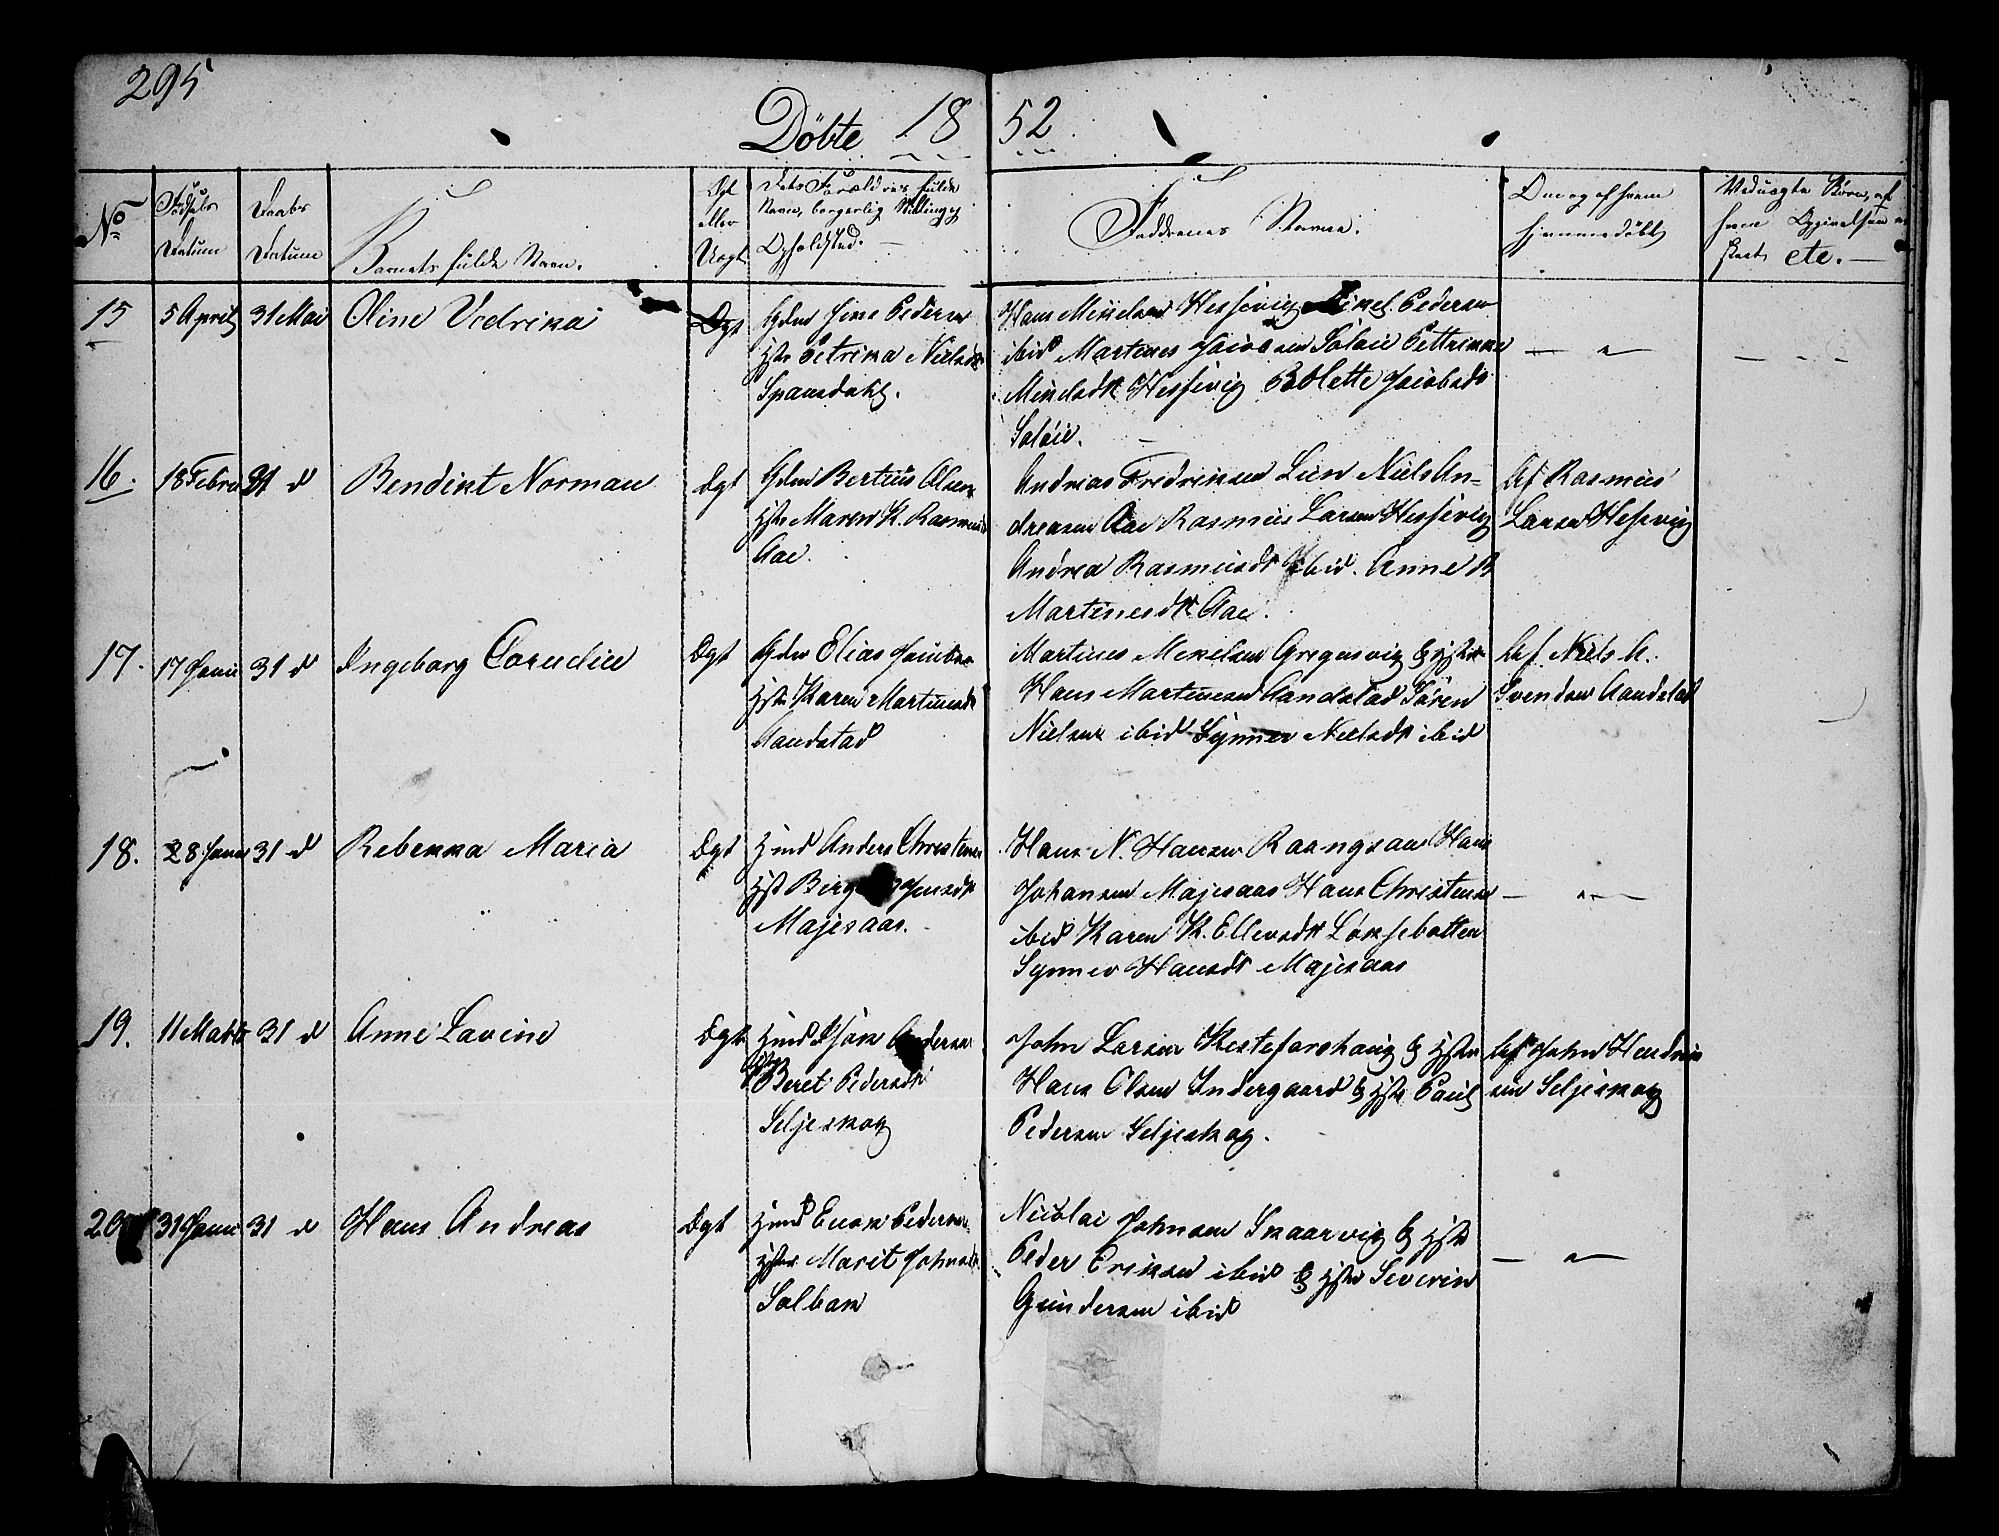 295
Döbte 18 52
No
Födsels Datum
Daabs Datum
Barnets fulde Navn.
Ægt eller Uægt
Dets Forældres fulde
Navn, borgerlig Stilling og
Opholdsted. —
Faddrenes Navne.
Om og af hvem
hjemmedöbt
Uduægte Börn, af
hvem Opgivelsen er
skeet etc. —
15 5 April 31 Mai Oline Vedrika Dgt Gdm Jens Pedersen
Hst Petrina Nielsdt
Spansdahl.
Hans Mikelsen Hessevig Mikel Pedersen
ibid Martines Jacobsen Soløie Pettrikka
Mikelsdt Hessevig Bolette Jacobsdt
Soløie.
— " —
16. 18 Febru 31 d Bendikt Norman Dgt Gdm Bertius Olsen
Hst Maren K. Rasmusd
Aae.
Andreas Fredriksen Lien Niels An-
dreasen Aae Rasmus Larsen Hessevig
Andrea Rasmusdt ibid. Anne B
Martinesdt Aae.
Af Rasmus
Larsen Hessevig
17. 17 Janu 31 d Ingeborg Cornelie Dgt Gdm Elias Jacobsen
Hst Karen Martinusdt
Aandstad
Martines Mikelsen Gregusvig & Hst
Hans Martinesen Aandstad Sören
Nielsen ibid Synner Nielsdt ibid
Af Niels A.
Svendsen Aandstad
18. 28 Janu 31 d Rebekka Maria Dgt Hmd Anders Christensen
Hst Jensdt
Majesaas.
Hans N. Hansen Hans
Johansen Majesaas Hans Christensen
ibid Karen K. Ellevsdt Løksebotten
Synner Hansdt Majesaas
— " —
19. 11 Marts 31 d Anne Lavine Dgt Hmd Andersen
Hst Beret Pedersdt
Seljeskog
John Larsen Kesteforshaug & Hst
Hans Olsen Indergaard & Hst Paul
Pedersen Seljeskog.
Af John Hendrik
sen Seljeskog
20 31 Janu 31 d Hans Andreas Dgt Hmd Enok Pedersen
Hst Marit Johnsdt
Solbak
Nicolai Johnsen Skaarvig & Hst
Peder Eriksen ibid & Hst Severin
Gundersen ibid
— " —